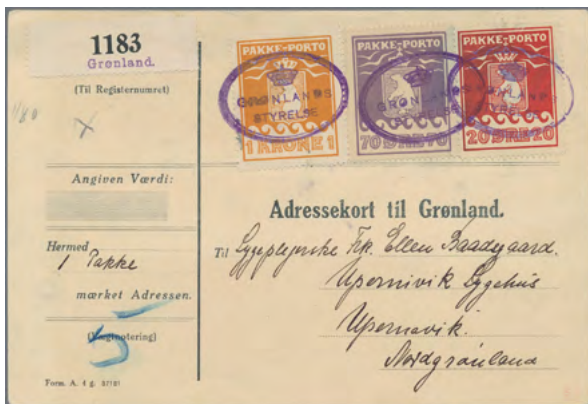 1183
Grønland.
(Til Registernumret)
1/80
X
Angiven Værdi:
Hermed
1 Pakke
mærket Adressen.
(Vægtnotering)
5
Form. A. 4 g. 37181
PAKKE-PORTO
GRØNLANDS
STYRELSE
1 KRONE 1
PAKKE-PORTO
GRØNLANDS
70 ØRE 70
PAKKE-PORTO
GRØNLANDS
STYRELSE
20 ØRE 20
Adressekort til Grønland.
Til Sygeplejerske Frk. Ellen Baadsgaard.
Upernivik Sygehus
Upernavik.
Nordgrønland